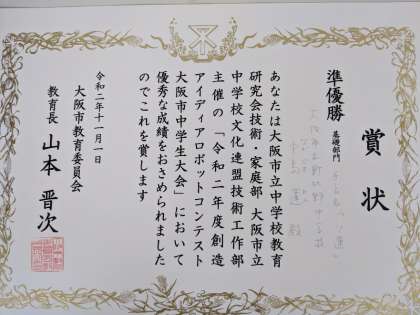 賞状
準優勝
基礎部門
殿
あなたは大阪市立中学校教育
研究会技術・家庭部 大阪市立
中学校文化連盟技術工作部
主催の「令和二年度創造
アイディアロボットコンテスト
大阪市中学生大会」において
優秀な成績をおさめられました
のでこれを賞します
令和二年十一月一日
大阪市教育委員会
教育長 山本晋次